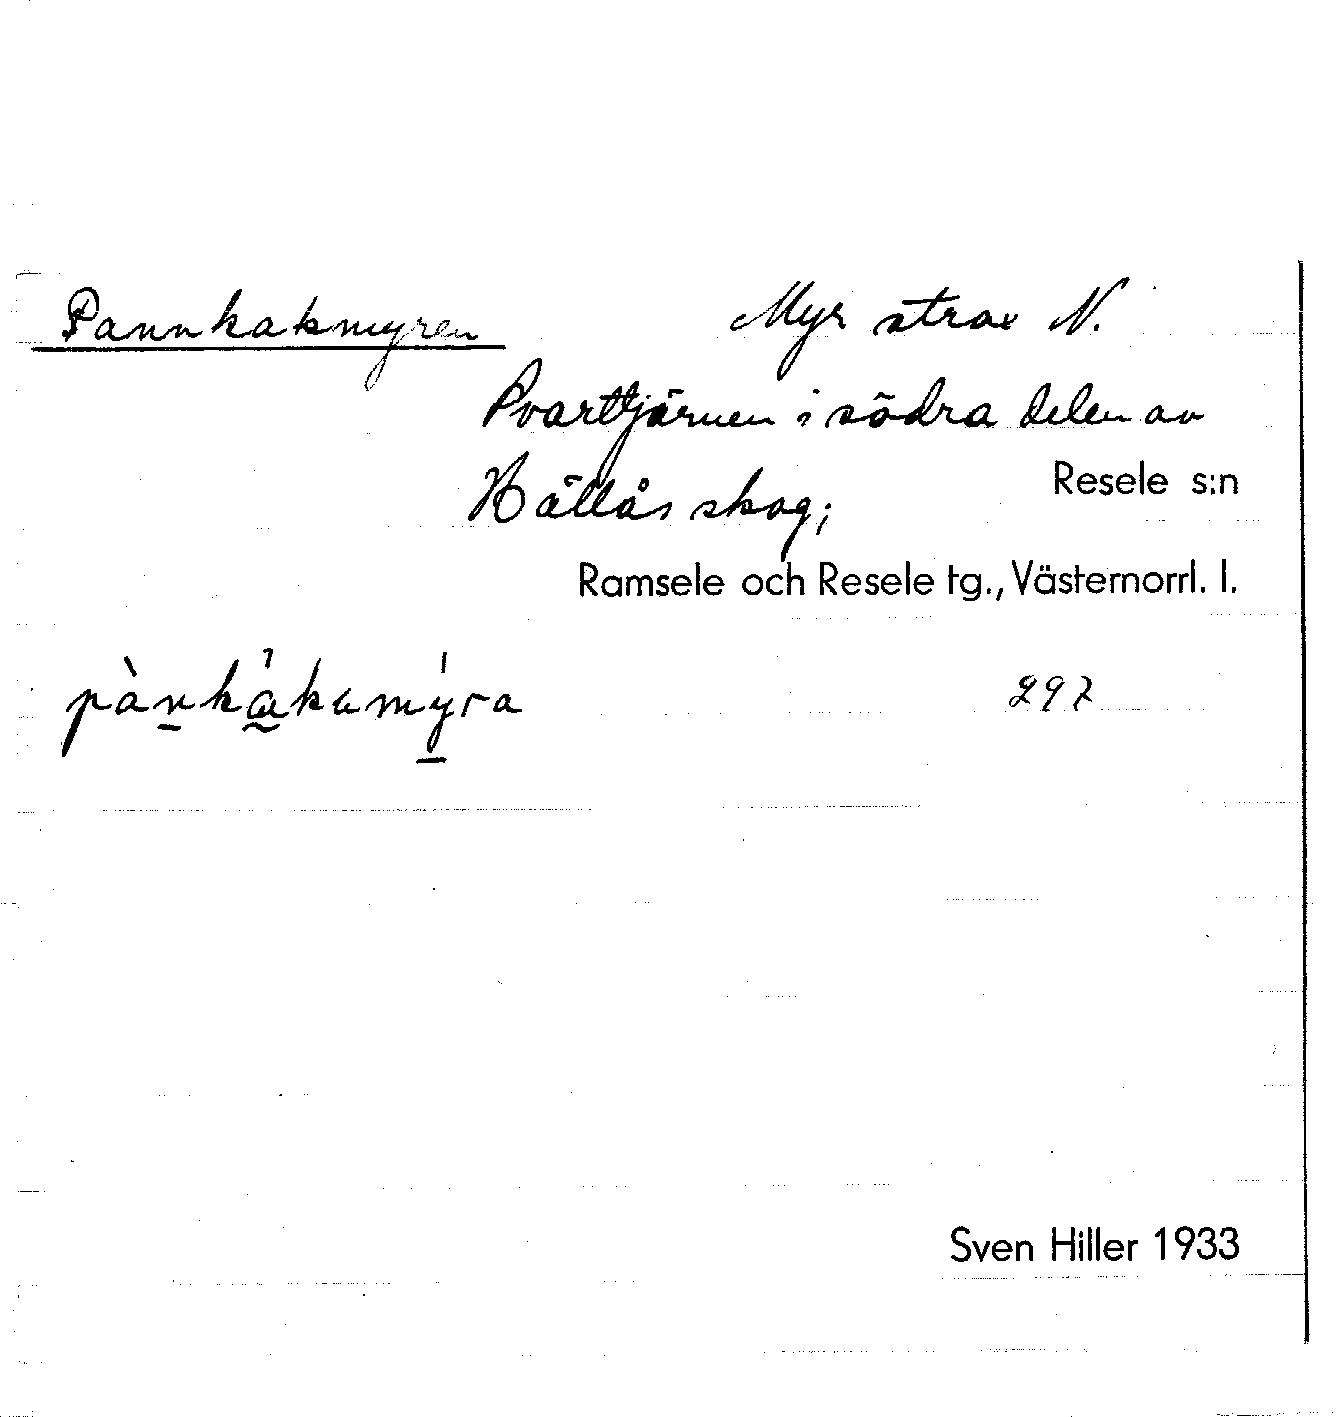 Pannkakmyren
Myr strax N.
Svarttjärnen i södra delen av
Hällås skog;
Resele s:n
Ramsele och Resele tg., Västernorrl. l.
297
Sven Hiller 1933